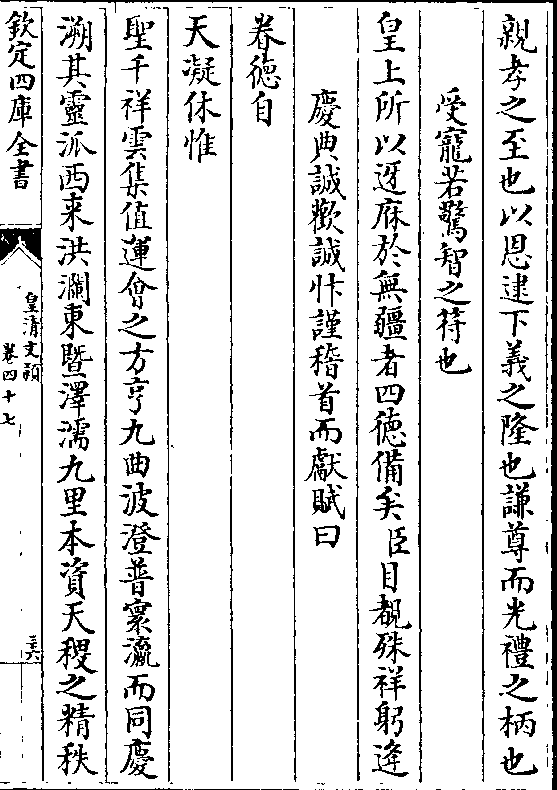 親孝之至也以恩逮下義之隆也謙尊而光禮之柄也
受寵若驚智之符也
皇上所以迓庥於無疆者四徳備矣臣目覩殊祥躬逢
慶典誠歡誠忭謹稽首而獻賦曰
眷徳自
天凝休惟
聖千祥雲集值運會之方亨九曲波澄普寰瀛而同慶
溯其靈派西来洪瀾東暨澤濡九里本資天稷之精秩
欽定四庫全書
皇清文頴
卷四十七
三六